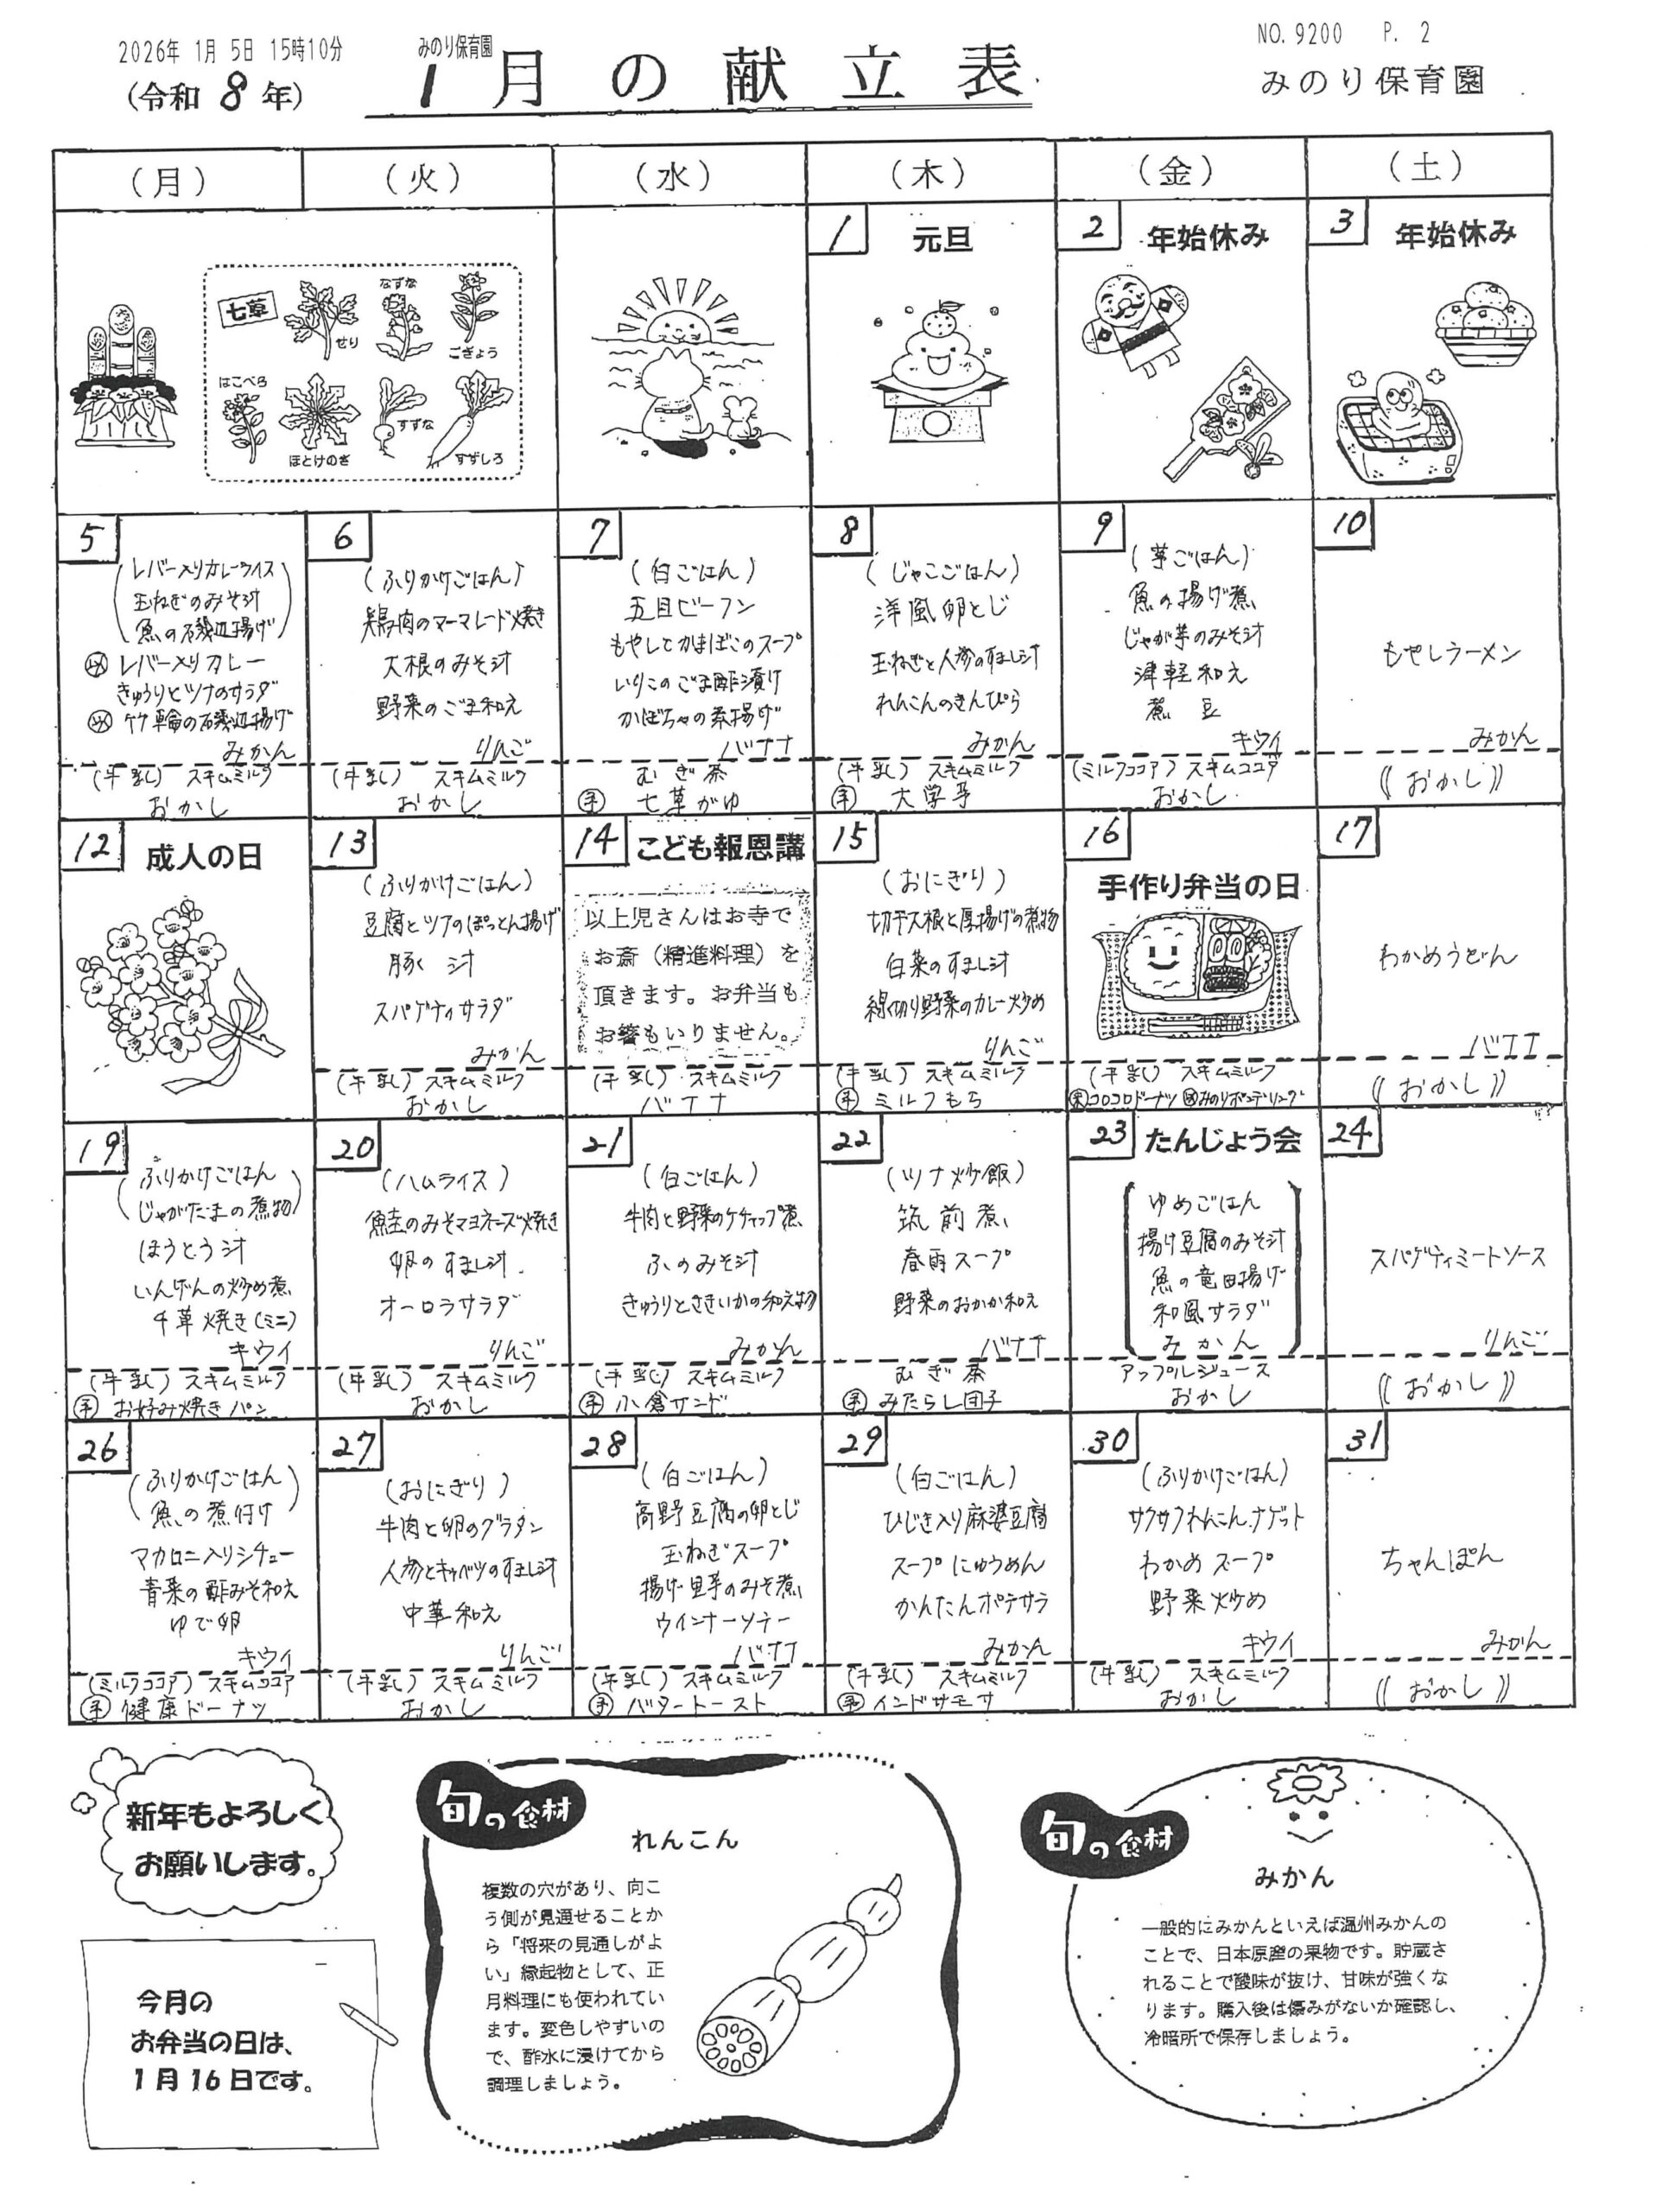 2026年 1月 5日 15時10分
みのり保育園
NO. 9200 P. 2
(令和 8 年)
1月の献立表
みのり保育園
(月)
(火)
(水)
(木)
(金)
(土)
七草
せり
なずな
ごぎょう
はこべら
ほとけのざ
すずな
すずしろ
1 元旦
2 年始休み
3 年始休み
5
(レバー入りカレーライス
玉ねぎのみそ汁
魚の磯辺揚げ)
レバー入りカレー
きゅうりとツナのサラダ
竹輪の磯辺揚げ
みかん
(牛乳) スキムミルク
おかし
6
(ふりかけごはん)
鶏肉のマーマレード焼き
大根のみそ汁
野菜のごま和え
りんご
(牛乳) スキムミルク
おかし
7
(白ごはん)
五目ビーフン
もやしとかまぼこのスープ
いりこのごま酢漬け
かぼちゃの素揚げ
バナナ
むぎ茶
手 七草がゆ
8
(じゃこごはん)
洋風卵とじ
玉ねぎと人参のすまし汁
れんこんのきんぴら
みかん
(牛乳) スキムミルク
手 大学芋
9
(芋ごはん)
魚の揚げ煮
じゃが芋のみそ汁
津軽和え
煮豆
キウイ
(ミルクココア) スキムココア
おかし
10
もやしラーメン
みかん
((おかし))
12 成人の日
13
(ふりかけごはん)
豆腐とツナのぽっとん揚げ
豚汁
スパゲティサラダ
みかん
(牛乳) スキムミルク
おかし
14 こども報恩講
以上児さんはお寺で
お斎（精進料理）を
頂きます。お弁当も
お箸もいりません。
(牛乳) スキムミルク
バナナ
15
(おにぎり)
切干大根と厚揚げの煮物
白菜のすまし汁
線切り野菜のカレー炒め
りんご
(牛乳) スキムミルク
手 ミルクもち
16
手作り弁当の日
(牛乳) スキムミルク
コロコロドーナツ みのりポンデリング
17
わかめうどん
バナナ
((おかし))
19
(ふりかけごはん
じゃがたまの煮物)
ほうとう汁
いんげんの炒め煮
千草焼き(ミニ)
キウイ
(牛乳) スキムミルク
手 お好み焼きパン
20
(ハムライス)
鮭のみそマヨネーズ焼き
卵のすまし汁
オーロラサラダ
りんご
(牛乳) スキムミルク
おかし
21
(白ごはん)
牛肉と野菜のケチャップ煮
ふのみそ汁
きゅうりとさきいかの和え物
みかん
(牛乳) スキムミルク
手 小倉サンド
22
(ツナ炒飯)
筑前煮
春雨スープ
野菜のおかか和え
バナナ
むぎ茶
手 みたらし団子
23 たんじょう会
ゆめごはん
揚げ豆腐のみそ汁
魚の竜田揚げ
和風サラダ
みかん
アップルジュース
おかし
24
スパゲティミートソース
りんご
((おかし))
26
(ふりかけごはん)
魚の煮付け
マカロニ入りシチュー
青菜の酢みそ和え
ゆで卵
キウイ
(ミルクココア) スキムココア
手 健康ドーナツ
27
(おにぎり)
牛肉と卵のグラタン
人参とキャベツのすまし汁
中華和え
りんご
(牛乳) スキムミルク
おかし
28
(白ごはん)
高野豆腐の卵とじ
玉ねぎスープ
揚げ里芋のみそ煮
ウインナーソテー
バナナ
(牛乳) スキムミルク
手 バタートースト
29
(白ごはん)
ひじき入り麻婆豆腐
スープにゅうめん
かんたんポテサラ
みかん
(牛乳) スキムミルク
手 インドサモサ
30
(ふりかけごはん)
サクサクれんこんナゲット
わかめスープ
野菜炒め
キウイ
(牛乳) スキムミルク
おかし
31
ちゃんぽん
みかん
((おかし))
新年もよろしく
お願いします。
今月の
お弁当の日は、
1月16日です。
旬の食材
れんこん
複数の穴があり、向こ
う側が見通せることか
ら「将来の見通しがよ
い」縁起物として、正
月料理にも使われてい
ます。変色しやすいの
で、酢水に浸けてから
調理しましょう。
旬の食材
みかん
一般的にみかんといえば温州みかんの
ことで、日本原産の果物です。貯蔵さ
れることで酸味が抜け、甘味が強くな
ります。購入後は傷みがないか確認し、
冷暗所で保存しましょう。